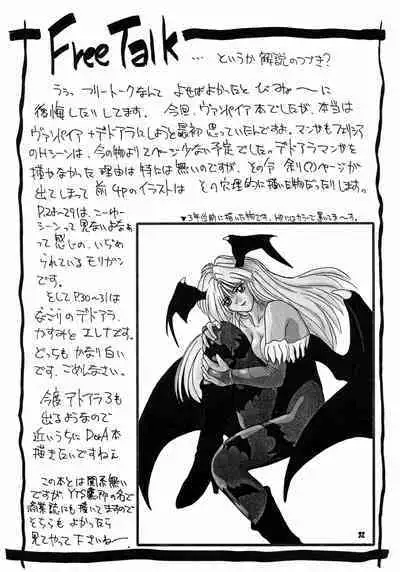 Free Talk
… というか解説のつづき?
うぅっ フリートークなんて よせばよかったと ひじょーに
後悔したりしてます。 今回、ヴァンパイア本でしたが、本当は
ヴァンパイア+デドアラにしようと最初思っていたんですよ。マンガもフェリシア
のHシーンは、今の物より2ページ少ない予定でした。デドアラマンガを
描かなかった理由は特には無いのですが、その分 余り(?)ページが
出てしまって 前4Pのイラストは その穴埋め的に描いた物だったりします。
P.28~29は、こーゆー
シーンって見ないよなぁ
って感じの、いぢめ
られているモリガン
です。
そしてP.30~31は
なごりのデドアラ、
かすみとエレナです。
どっちもかなり白い
です。ごめんなさい。
今度デドアラ3も
出るようなので
近いうちにDOA本
描きたいですねぇ
この本とは関係無い
ですが、YTSの名で
商業誌にも描いてますので
そちらも よかったら
見てやって下さいねー
▼3年位前に描いた物です。HPにはカラーで置いてまーす。
32